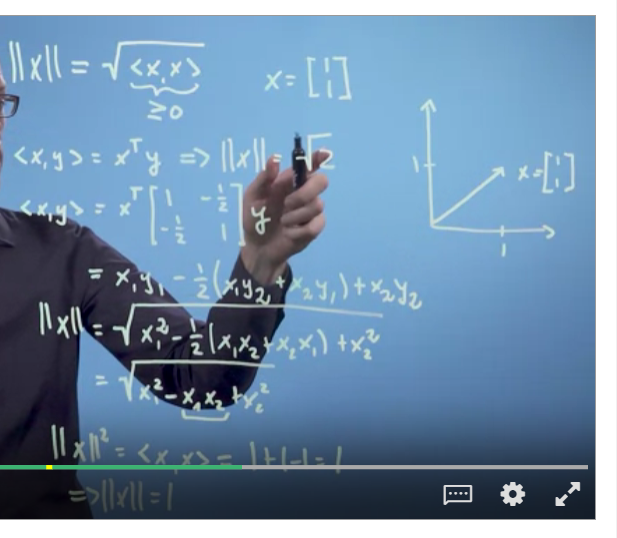 ||x|| = √<x,x>
≥0
x = [1 1]
<x,y> = xᵀy => ||x|| = √2
<x,y> = xᵀ [1 -½ -½ 1] y
1
x=[1 1]
1
= x₁y₁ - ½(x₁y₂ + x₂y₁) + x₂y₂
||x|| = √x₁² - ½(x₁x₂ + x₂x₁) + x₂²
= √x₁² - x₁x₂ + x₂²
||x||² = <x,x> = 1+1-1=1
=> ||x|| = 1